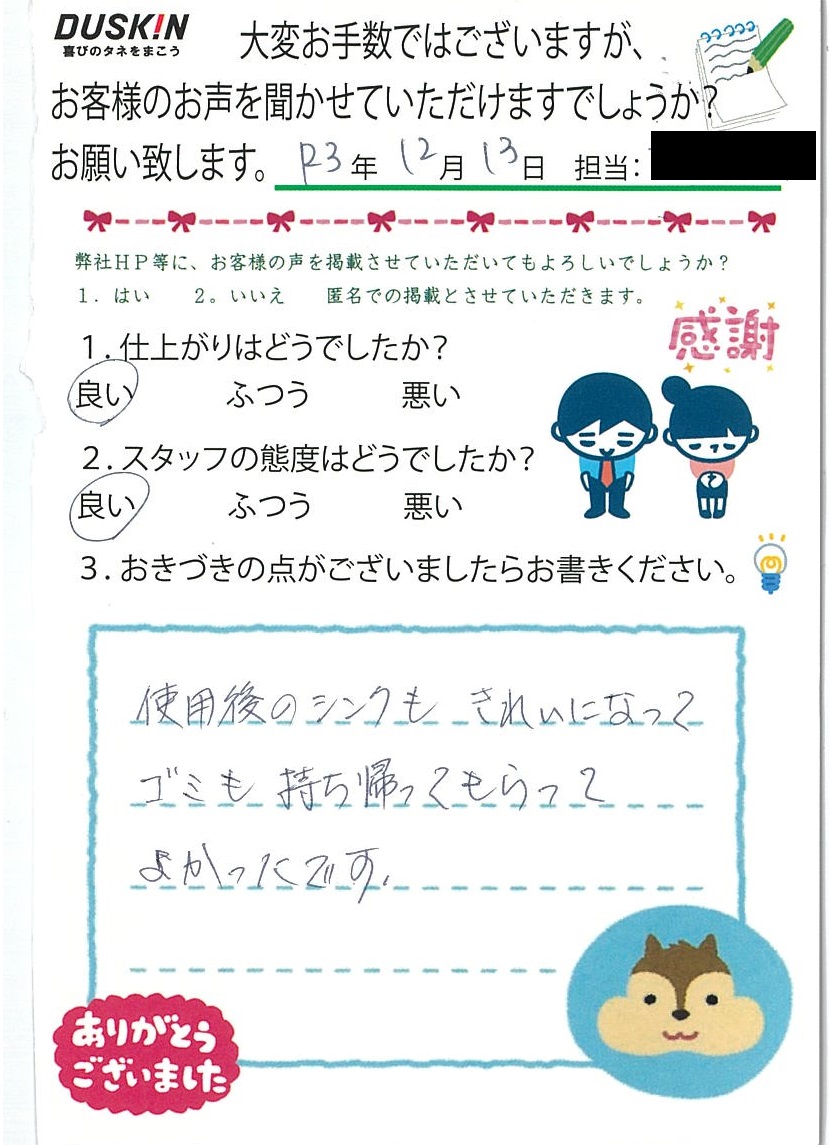 DUSK!N
喜びのタネをまこう
大変お手数ではございますが、
お客様のお声を聞かせていただけますでしょうか?
お願い致します。 R3年 12月 13日 担当:
弊社HP等に、お客様の声を掲載させていただいてもよろしいでしょうか?
1. はい 2。いいえ 匿名での掲載とさせていただきます。
感謝
1.仕上がりはどうでしたか?
良い ふつう 悪い
2.スタッフの態度はどうでしたか?
良い ふつう 悪い
3.おきづきの点がございましたらお書きください。
使用後のシンクも きれいになって
ゴミも 持ち帰ってもらって
よかったです。
ありがとう
ございました